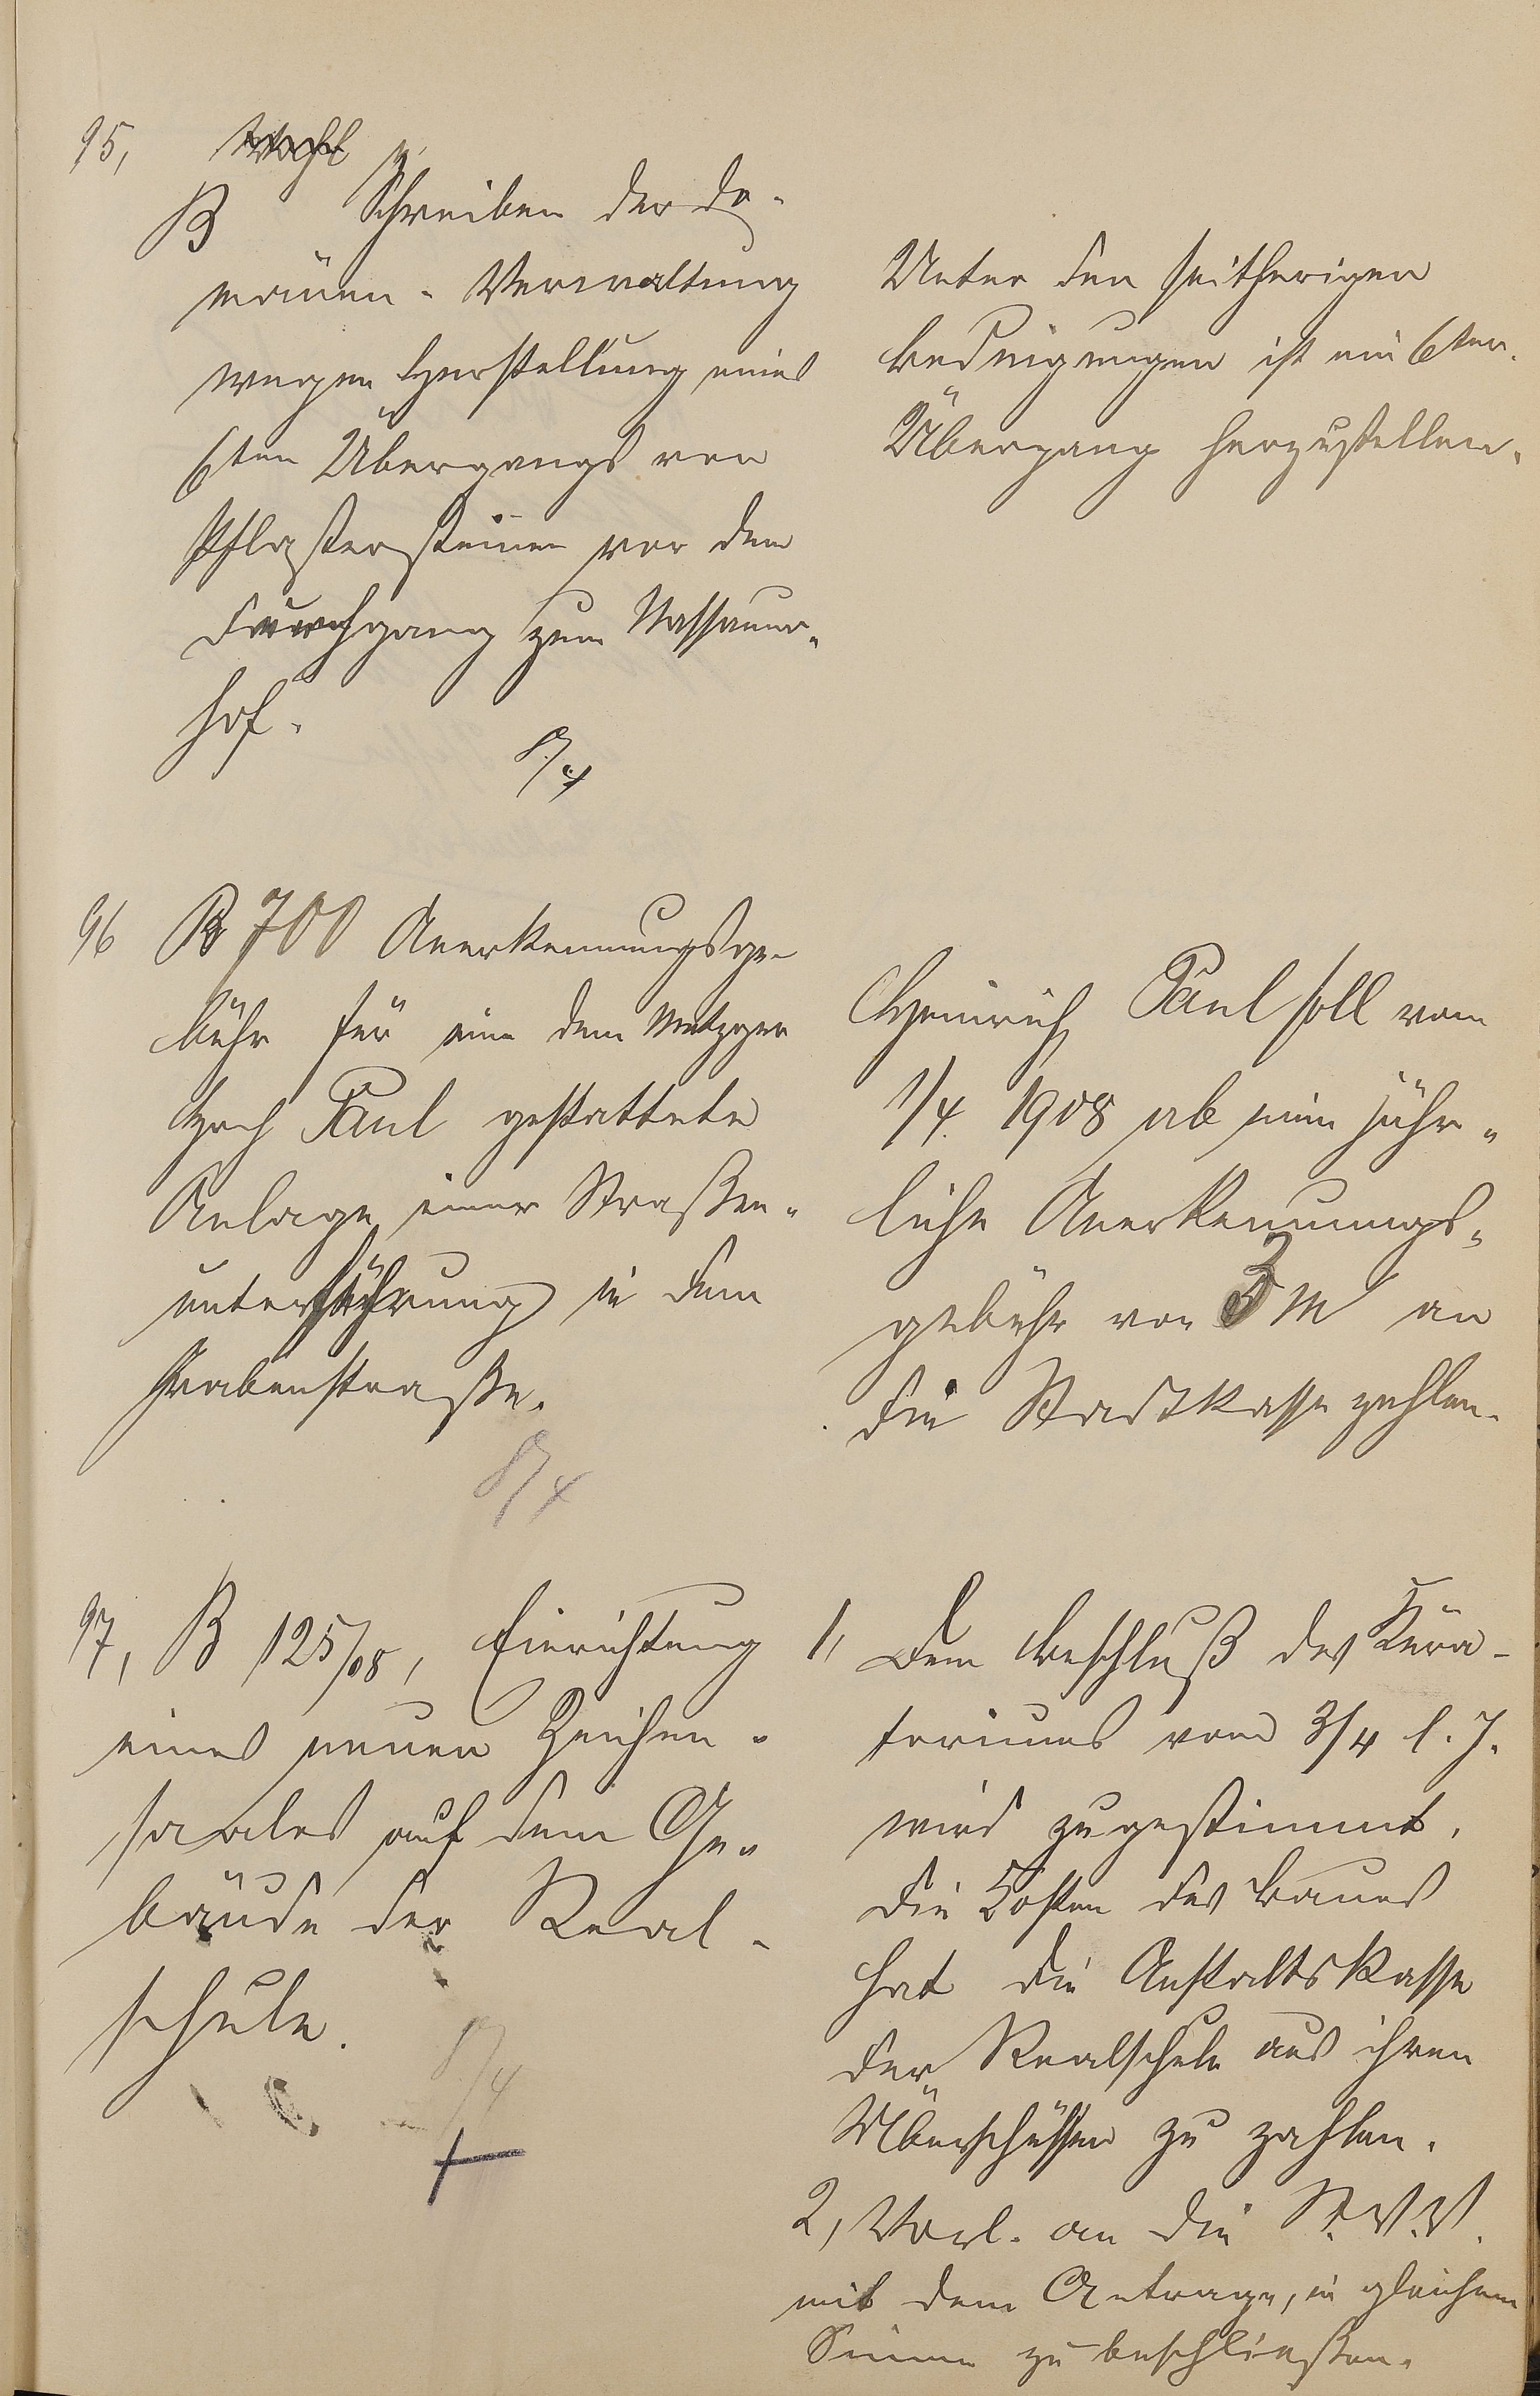 95,
B Schreiben der Do-
mänen-Verwaltung
wegen Herstellung eines
6ten Übergangs von
Pflastersteinen vor dem
Durchgang zum Nassauer-
hof.
8/4
Unter den seitherigen
Bedingungen ist ein 6ter
Übergang herzustellen.
96 B 700 Anerkennungsge-
bühr für eine dem Metzger
Hch Paul gestattete
Anlage einer Straßen-
unterführung in dem
Grabenstraße.
8/4
Heinrich Paul soll vom
1/4. 1908 ab eine jähr-
liche Anerkennungs-
gebühr von 3 M an
die Stadtkasse zahlen.
97, B 125/08, Einrichtung
eines neuen Zeichen-
saales auf dem Ge-
bäude der Real-
schule.
8/4
1, Dem Beschluß des Kura-
toriums vom 3/4 l. J.
wird zugestimmt.
Die Kosten des Baues
hat die Anstaltskasse
der Realschule aus ihren
Überschüssen zu zahlen.
2, Vorl. an die St. V. V.
mit dem Antrage, in gleichem
Sinne zu beschließen.